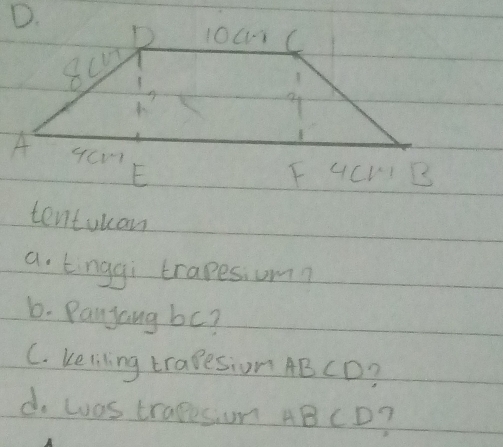 D.
D 10cm C
8cm
A 4cm E F 4cm B
tentukan
a. tinggi trapesium?
b. Panjang bc?
C. keliling trapesium ABCD?
d. Luas trapesium ABCD?